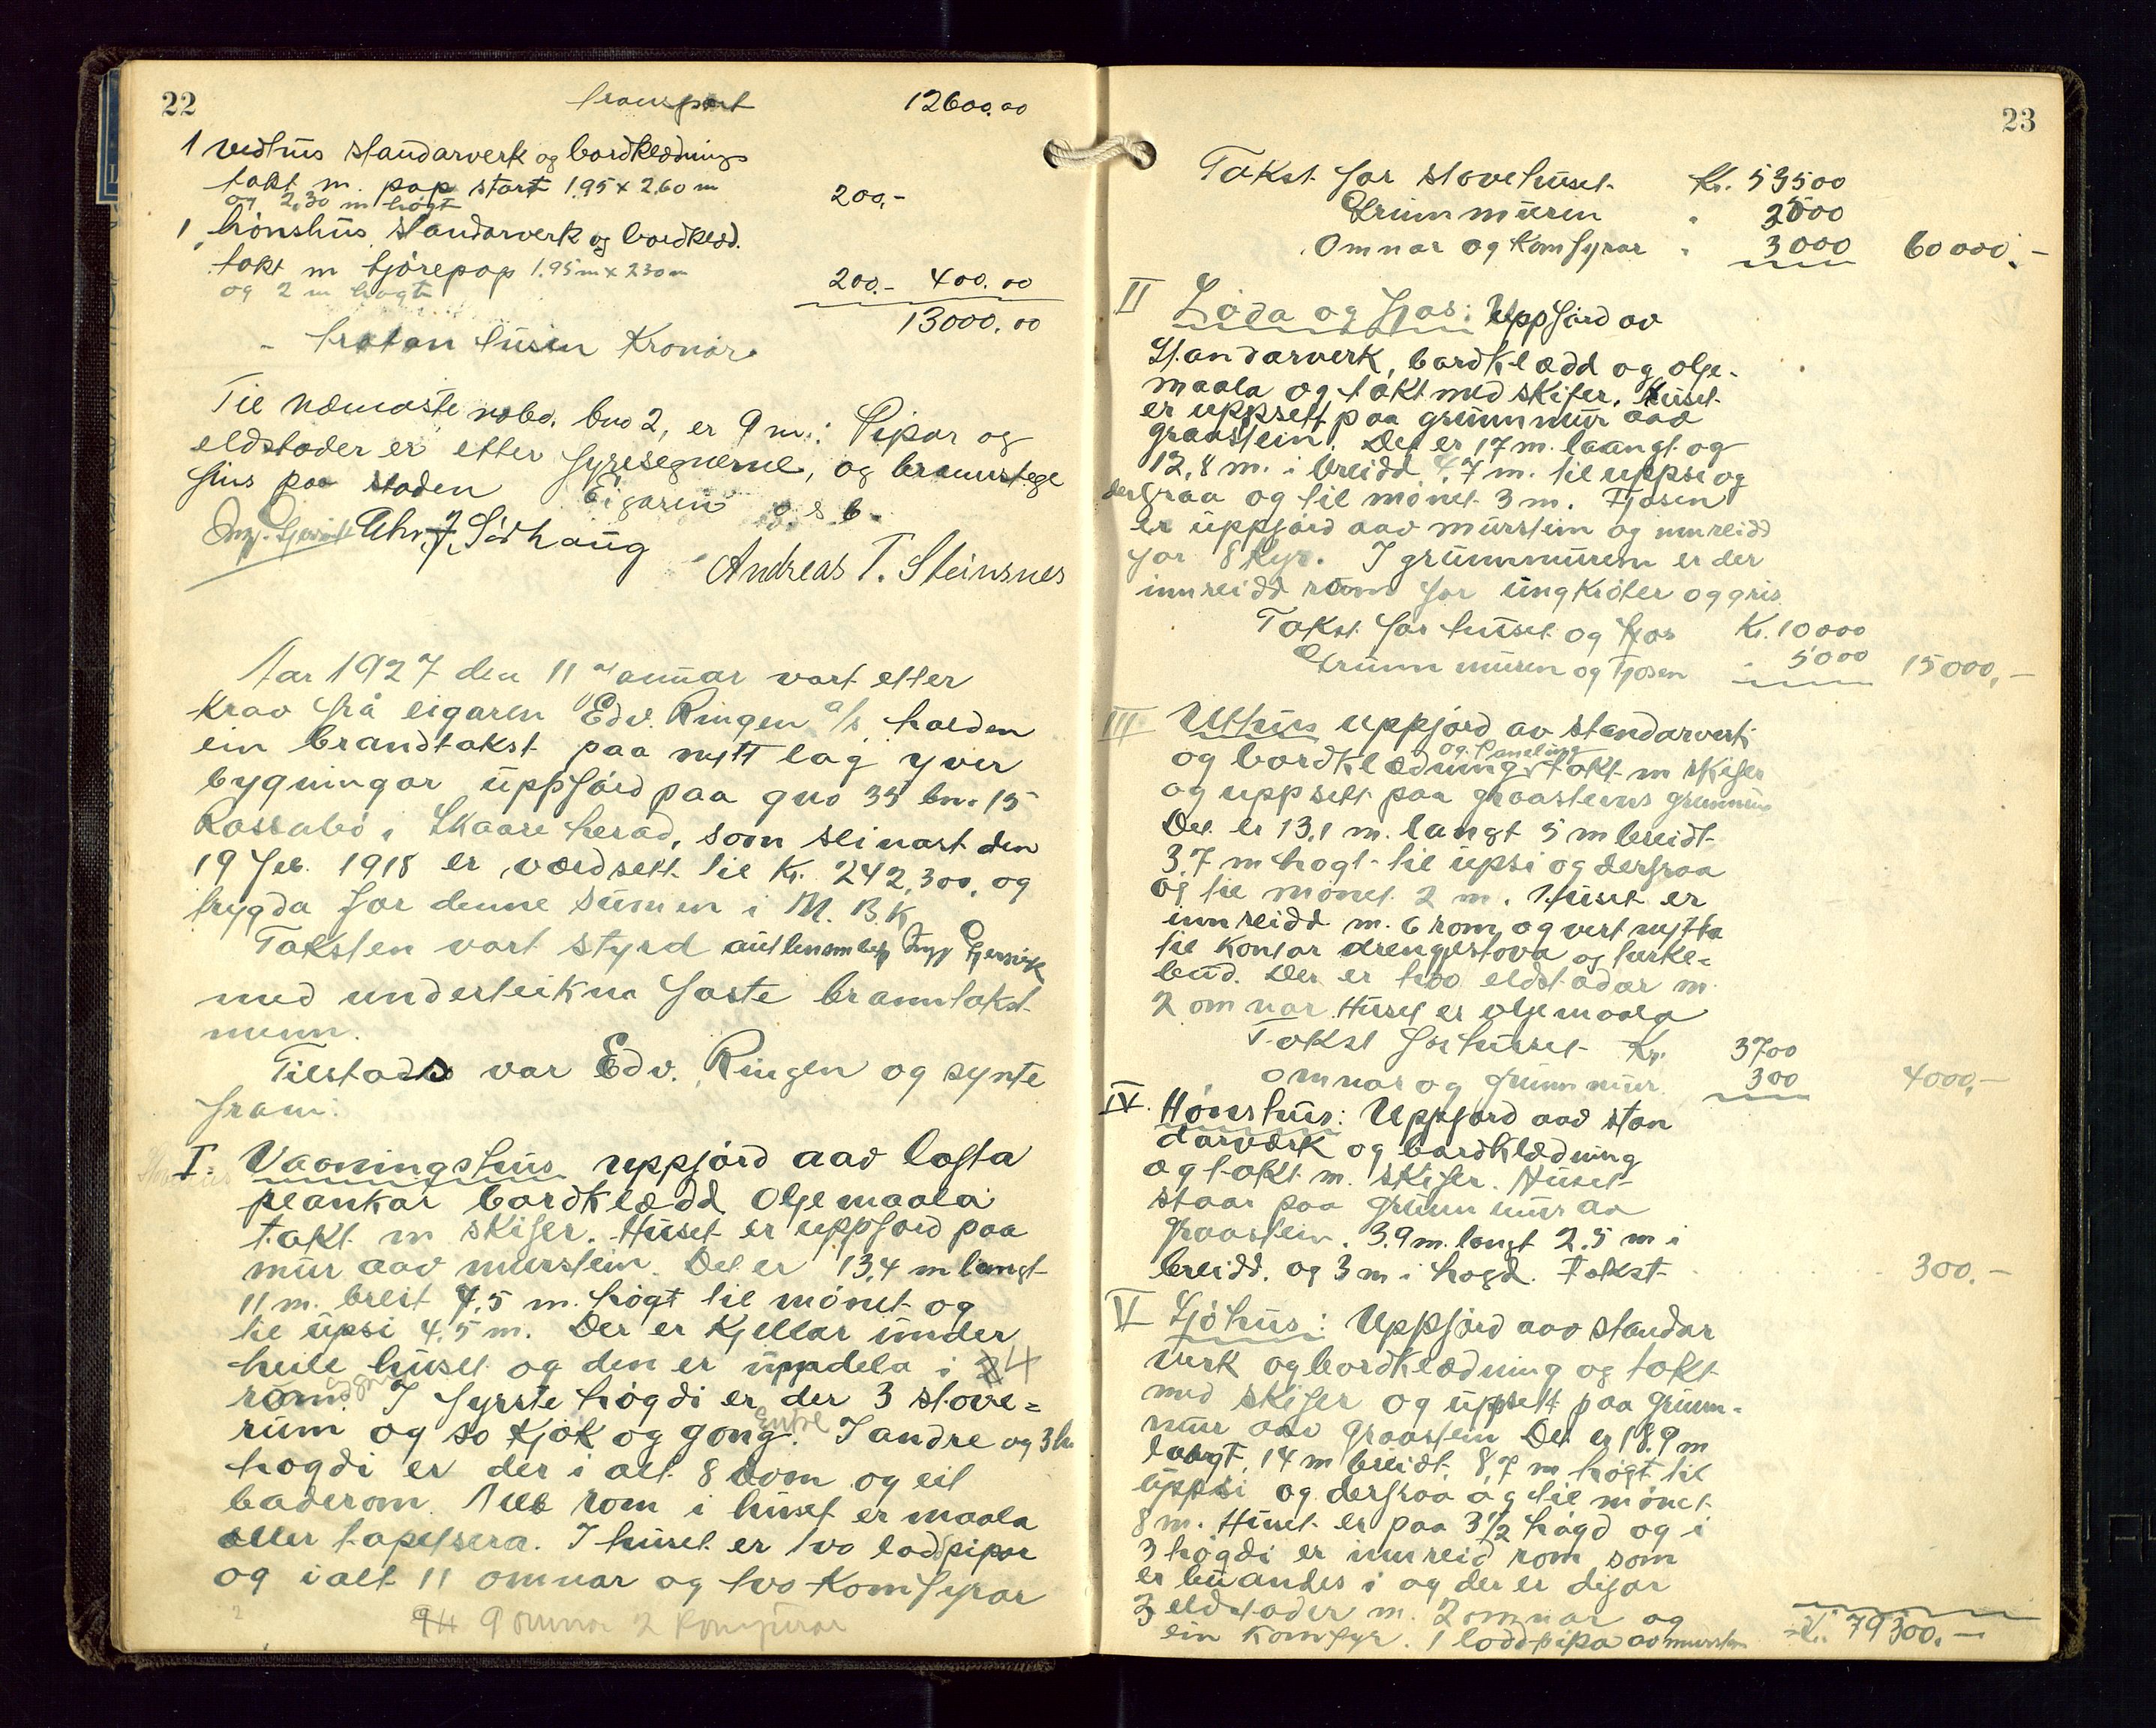 22
transport 12600.00
1 vedhus standarverk og bordklædning
takt m. pap stort 1.95 x 2.60 m
og 2,30 m høgt 200,-
1 hønshus standarverk og bordklæd.
takt m tjørepap 1.95 m x 2.30 m
og 2 m høgt 200.- 400.00
13000.00
- tretan tusen Kronor.
Til næmaste nabo, bno 2, er 9 m: Pipor og
eldstader er etter fyresegnerne, og braunstege
fins paa staden Eigaren o s b.
Chr. J. Sørhaug
Andreas T. Steinsnes
Aar 1927 den 11 Januar vart etter
Krav frå eigaren "Edv. Ringen a/s halden
ein brandtakst paa nytt lag yver
bygningar uppførd paa gno 35 bn. 15
Rossabø i Skaare herad, som seinast den
19 feb. 1918 er værdsett til Kr. 242,300, og
trygda for denne sumen i M. B. K
Taksten vart styrd
med underteikna faste branntakst-
menn.
Tilstads var Edv. Ringen og synte
fram:
I. Vaaningshus uppjørd aav lafta
plankar bordklædd Oljemaala
takt m skifer. Huset er uppførd paa
mur aav murstein. Det er 13,4 m langt
11 m. breit 7.5 m. høgt til mønet og
til upsi 4.5 m. Der er Kjellar under
heile huset og den er uppdela i 4
rom. I fyrste høgdi er der 3 stove=
rum og so Kjøk og gong. Entre I andre og 3 hr
høgdi er der i alt 8 rom og eit
baderom. Alle rom i huset er maala
eller tapetsera. I huset er tvo loddpipor
og i alt 11 omnar og tvo Komfyrar
9 omnar 2 Komfyrar
23
Takst for stovehuset Kr. 53500
Grunnmuren " 3500
Omnar og Komfyrar " 3000 60000.-
II Løda og fjos: Uppførd av
Standarverk, bordklædd og olje-
maala og takt med skifer. Huset
er uppsett paa grunnmur aav
graastein. Det er 17 m. laangt og
12,8 m. i breidd 4,7 m. til uppsi og
derfraa og til mønet 3 m. Fjosen
er uppjørd aav murstein og innreidd
for 8 Kyr. I grunnmuren er der
innreidd room for ungkrøter og gris
Takst for huset og fjos Kr. 10000
Grunnmuren og Fjosen " 5000 15000,-
III Uthus uppjørd av standarverk
og bordklædning og Paneling takt m skifer
og uppsett paa graasteins grunnmur
Det er 13,1 m. langt 5 m breidt
3.7 m høgt til upsi og derfraa
og til mønet 2 m. Huset er
innreidd m. 6 rom og vert nytta
til Kontor drengjestova og turke=
bud. Der er tvo eldstadar m.
2 omnar. Huset er oljemaala
Takst for huset Kr. 3700
omnar og grunnmur 300 4000,-
IV. Hønshus: Uppjord aav stan
darværk og bordklædning
og takt m. skifer. Huset
staar paa grunnmur av
graastein. 3.9 m. langt 2.5 m i
breidd. og 3 m i høgd. Takst 300.-
V Sjøhus: Uppførd aav standar
verk og bordklædning og takt
med skifer og uppsett paa grunn-
mur aav graastein Det er 18.9 m
langt, 14 m breidt, 8,7 m høgt til
uppsi og derfraa og til mønet
8 m. Huset er paa 3 1/2 høgd og i
3 høgdi er innreid rom som
er buandes i og der er difor
3 eldstader m. 2 omnar og
ein Komfyr. 1 loddpipa av murstein Kr. 79300.-